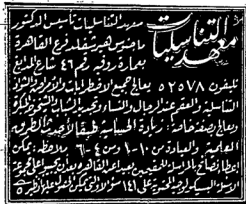 معهد التناسليات
معهد التناسليات تأسيس الدكتور
ماجنوس هيرشفلد فرع القاهرة
بعمارة روفيه رقم ٤٦ شارع المدابغ
تليفون ٥٢٥٧٨ يعالج جميع الاضطرابات والأمراض
التناسلية والعقم عند الرجال والنساء وتجديد الشباب والشيخوخة المبكرة
ويعالج بصفة خاصة: زيادة الحساسية طبقا لأحدث الطرق
العلمية والعيادة من ١٠ - ١ ومن ٤ - ٦ يلاحظ: يمكن
إعطاء نصائح بالمراسلة للمقيمين بعيدا عن القاهرة بعد أن يجيبوا على مجموعة
الأسئلة المحتوية على ١٤١ سؤالا والتي يمكن الحصول عليها نظير